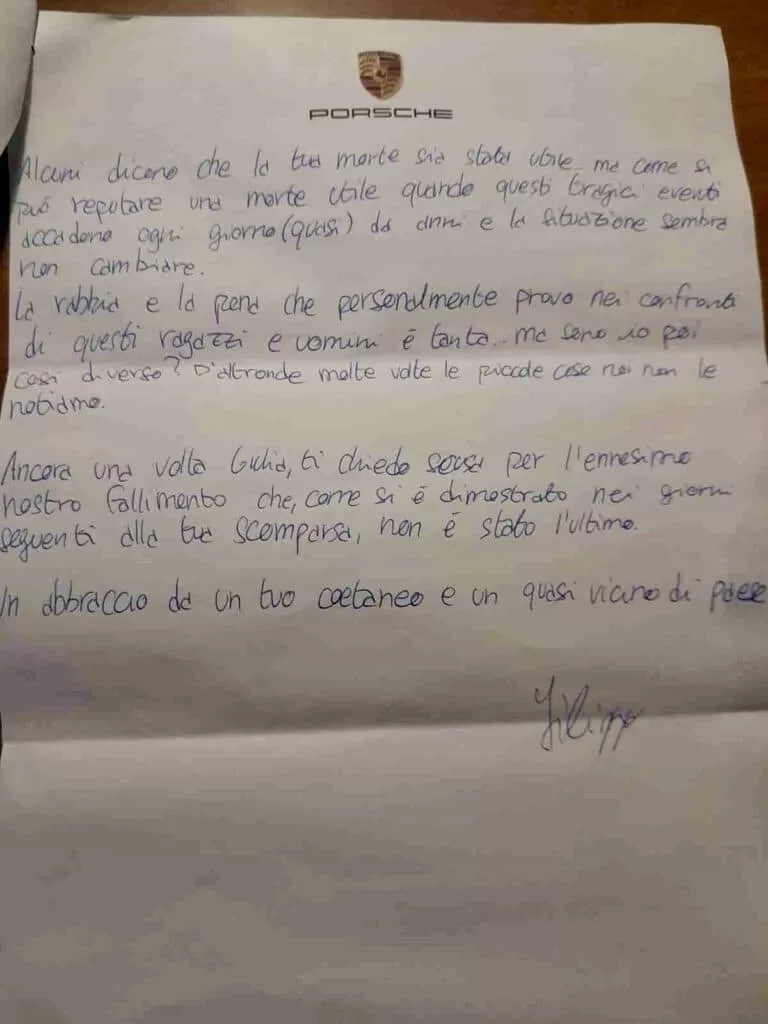 PORSCHE
Alcuni dicono che la tua morte sia stata utile ma come si
può reputare una morte utile quando questi tragici eventi
accadono ogni giorno (quasi) da anni e la situazione sembra
non cambiare.
La rabbia e la pena che personalmente provo nei confronti
di questi ragazzi e uomini è tanta... ma sono io poi
così diverso? D'altronde molte volte le piccole cose noi non le
notiamo.
Ancora una volta Giulia, ti chiedo scusa per l'ennesimo
nostro fallimento che, come si è dimostrato nei giorni
seguenti alla tua scomparsa, non è stato l'ultimo.
Un abbraccio da un tuo coetaneo e un quasi vicino di paese
Filippo